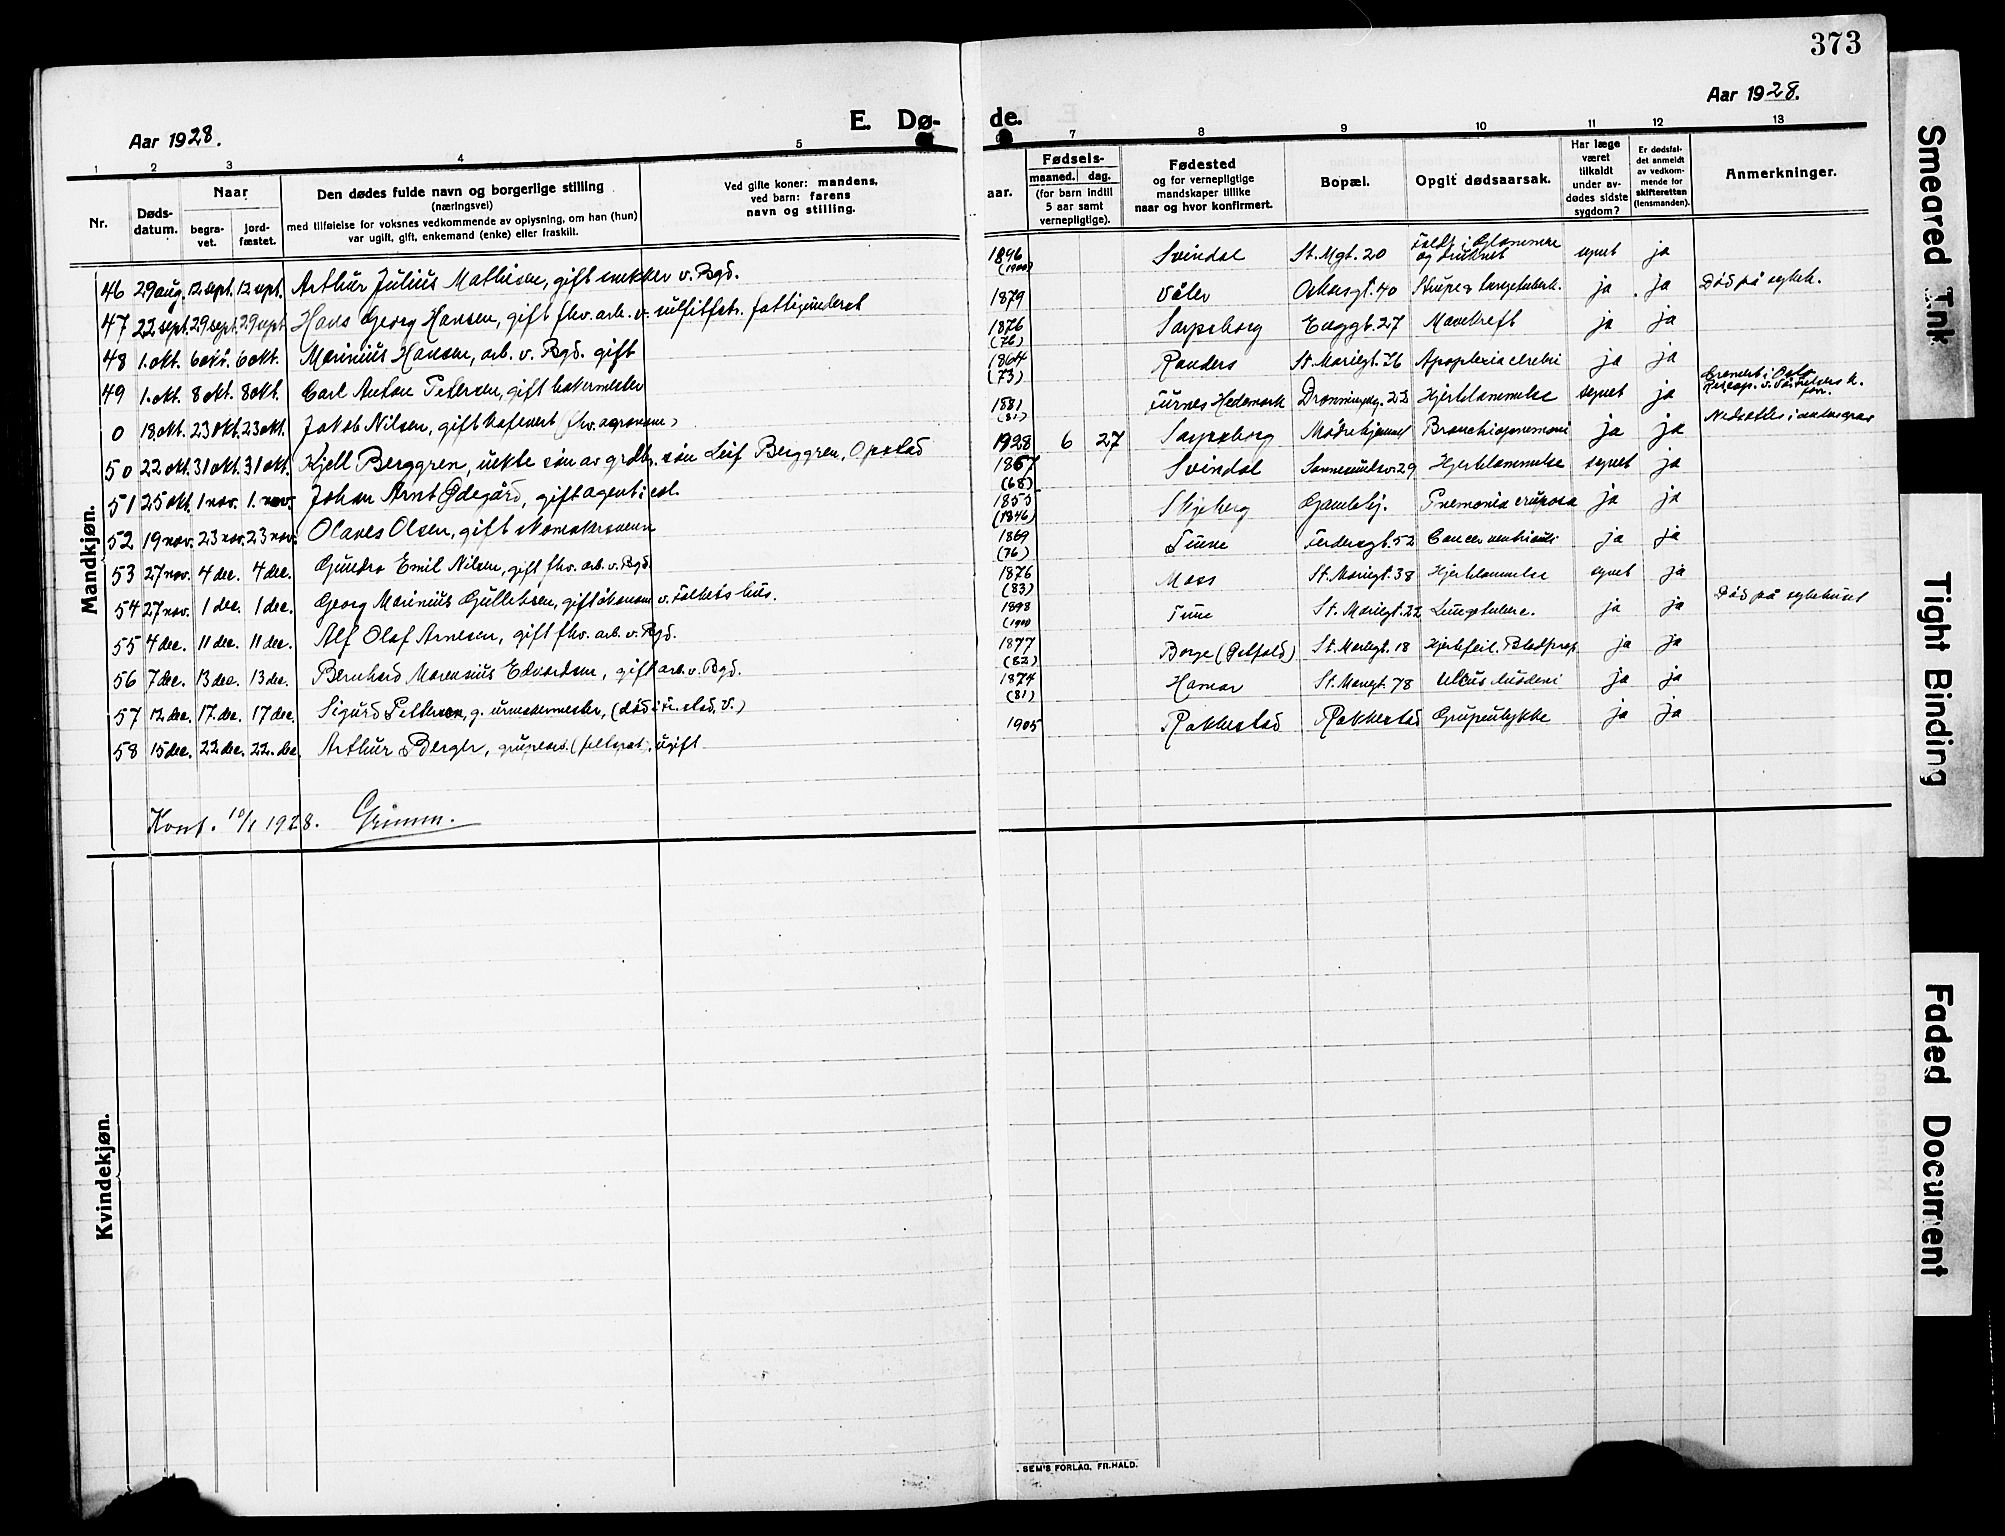 373
Aar 1928. E. Dø- de. Aar 1928.
1 2 3 4 5 7 8 9 10 11 12 13
Nr. Døds-datum. Naar begra-vet. jord-fæstet. Den dødes fulde navn og borgerlige stilling (næringsvei) med tilføielse for voksnes vedkommende av oplysning, om han (hun) var ugift, gift, enkemand (enke) eller fraskilt. Ved gifte koner: mandens, ved barn: farens navn og stilling. aar. Fødsels- maaned. dag. (for barn indtil 5 aar samt vernepligtige). Fødested og for vernepligtige mandskaper tillike naar og hvor konfirmert. Bopæl. Opgit dødsaarsak. Har læge været tilkaldt under av-dødes sidste sygdom? Er dødsfal-det anmeldt av vedkom-mende for skifteretten (lensmanden). Anmerkninger.
Mandkjøn.
46 29 aug. 12 sept. 12 sept. Arthur Julius Mathisen, gift snekker v. Bgd. 1896 (1900) Svindal St. Mgt. 20 Faldt i Glommene og druknet synet ja
47 22 sept. 29 sept. 29 sept. Hans Georg Hansen, gift fhv. arb. v. sulfitfabr. fattigunderst 1879 Våler 40 Strupe & ja ja Død på sykeh.
48 1. okt. 6 okt. 6 okt. Marinius Hansen, arb. v. Bgd. gift 1876 (76) Sarpsborg Enggt. 27 Mavekreft ja ja
49 1. okt. 8 okt. 8 okt. Carl Anton Petersen, gift bakermester 1864 (73) Randers St. Mariegt. 76 Apoplexia cerebri ja ja
0 18 okt. 23 okt. 23 okt. Jakob Nilsen, gift kafevert (fhv. agronom) 1881 (81) Furnes Hedemark Dronningg. 22 Hjertelammelse synet ja Kremert i Oslo
50 22 okt. 31 okt. 31 okt. Kjell Berggren, uekte søn av grdbr. søn Leif Berggren, Opstad 1928 6 27 Sarpsborg Mødrehjemmet Bronchiopnemoni ja ja
51 25 okt. 1 nov. 1. nov. Johan Arnt Ødegård, gift agent i col. 1867 (68) Svindal Sannesundsv. 29 Hjertelammelse synet ja
52 19 nov. 23 nov. 23 nov. Olaves Olsen, gift skomakersvenn 1855 (1846) Skjeberg Gamleby. Pnemonia cruposa ja ja
53 27 nov. 4 dec. 4 dec. Gundro Emil Nilsen, gift fhv. arb. v. Bgd. 1869 (76) Tune Ferdersgt. 52 Cancer ventriculi ja ja
54 27 nov. 1 dec. 1 dec. Georg Marinius Gulliksen, gift økonom v. Folkets hus. 1876 (83) Moss St. Mariegt. 38 Hjertelammelse synet ja
55 4 dec. 11 dec. 11 dec. Alf Olaf Arnesen, gift fhv. arb. v. Bgd. 1898 Tune St. Mariegt. 22 Lungetuberc. ja ja Død på sykehuset
56 7 dec. 13 dec. 13 dec. Bernhard Marensius Edvardsen, gift arb. v. Bgd. 1877 (82) Borge (Østfold) St. Mariegt. 18 Hjertefeil. ja ja
57 12 dec. 17. dec. 17 dec. Sigurd Pettersen, g. urmakermester, 1874 (81) Hamar St. Mariegt. 78 Ulcus duodeni ja ja
58 15 dec. 22 dec. 22. dec. Arthur Berger, grupearb. (feltspat), ugift 1905 Rakkestad Rakkestad Grupeulykke ja ja
Konf. 10/1 1928. Grimm.
Kvindekjøn.
SEM'S FORLAG, FR.HALD.
Smeared Ink
Tight Binding
Faded Document